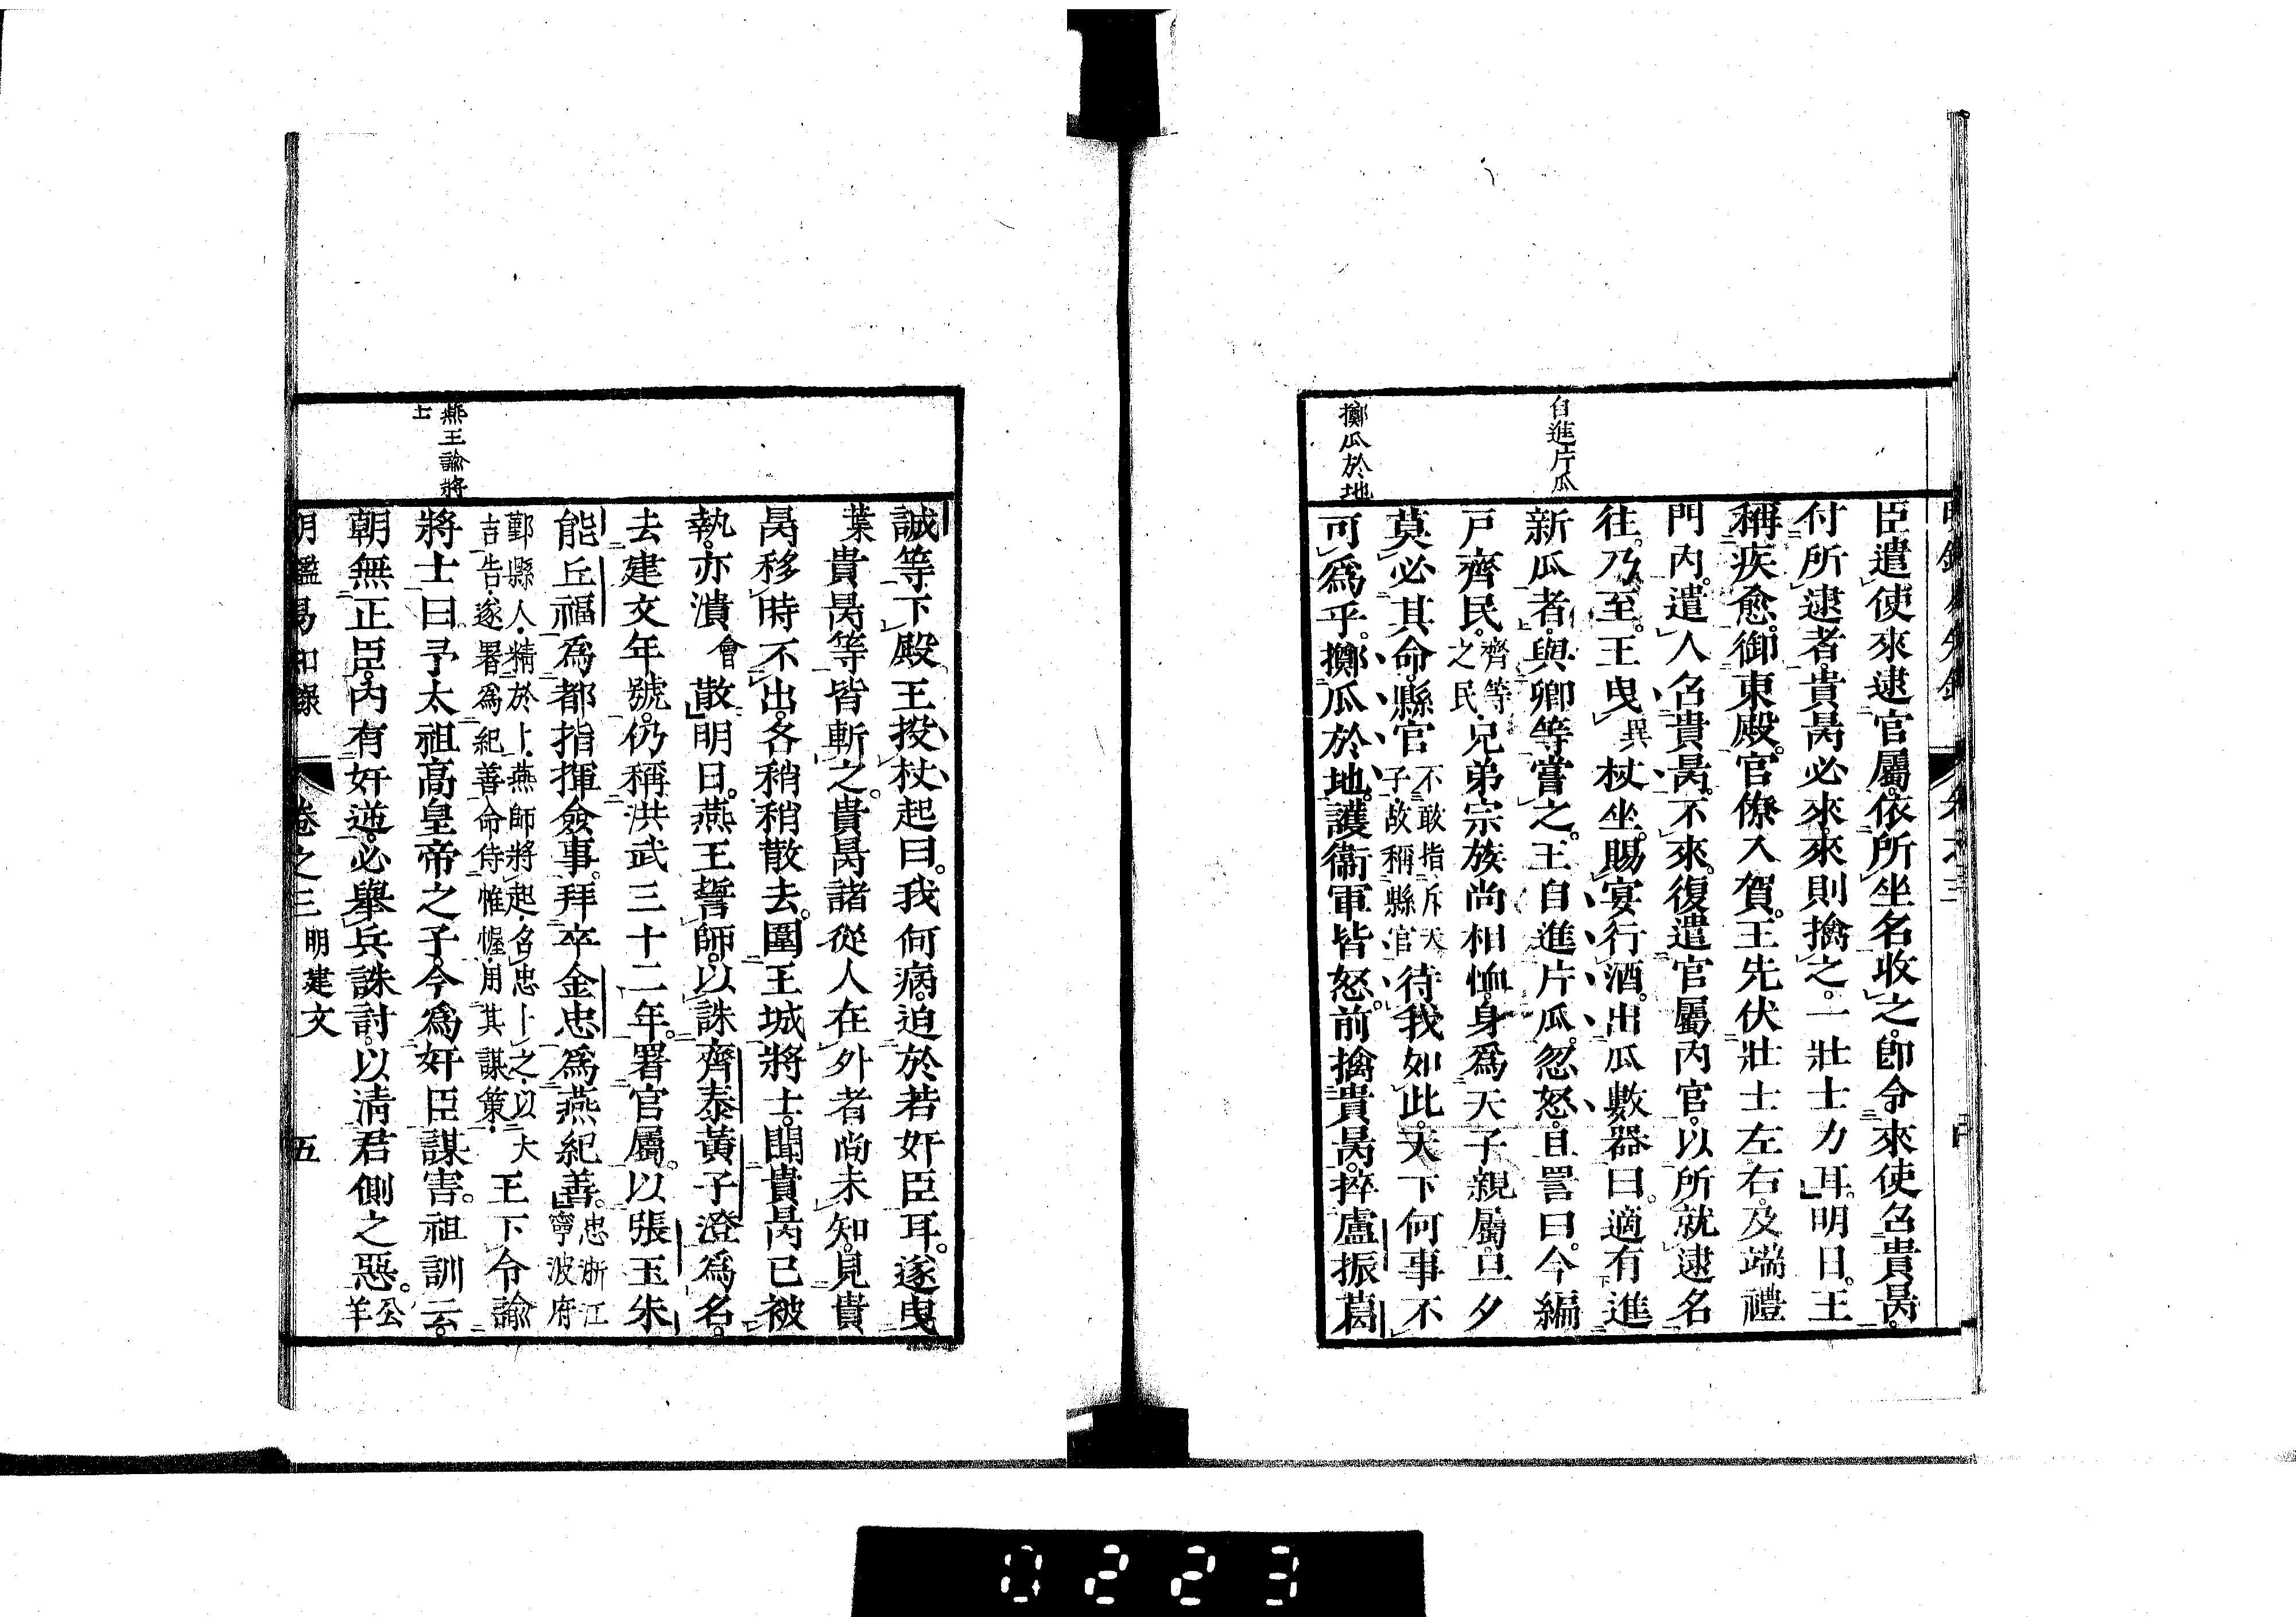 自進片瓜
擲瓜於地
臣遣使來逮官屬。依所坐名收之。卽令來使召貴昺。
付所逮者。貴昺必來。來則擒之。一壯士力耳。明日。王
稱疾愈。御東殿。官僚入賀。王先伏壯士左右。及端禮
門內。遣人召貴昺。不來。復遣官屬內官。以所就逮名
往。乃至。王曳異杖坐。賜宴行酒。出瓜數器曰。適有進
新瓜者。與卿等嘗之。王自進片瓜。忽怒。且詈曰。今編
戸齊民。齊等之民。兄弟宗族尚相恤。身爲天子親屬。旦夕
莫必其命。縣官不敢指斥天子。故稱縣官。待我如此。天下何事不
可爲乎。擲瓜於地。護衞軍皆怒。前擒貴昺。捽盧振葛
燕王諭將士
誠等下殿王投杖起曰。我何病。迫於若奸臣耳。遂曳
葉貴昺等皆斬之。貴昺諸從人在外者尚未知。見貴
昺移時不出。各稍稍散去。圍王城將士。聞貴昺已被
執。亦潰會散。明日。燕王誓師。以誅齊泰黃子澄爲名。
去建文年號。仍稱洪武三十二年。署官屬。以張玉朱
能丘福爲都指揮僉事。拜卒金忠爲燕紀善。忠浙江寧波府
鄞縣人。精於卜。燕師將起。召忠卜之。以大吉告。遂署爲紀善。命侍帷幄。用其謀策。王下令諭
將士曰。予太祖高皇帝之子。今爲奸臣謀害。祖訓云。
朝無正臣。內有奸逆。必舉兵誅討。以淸君側之惡。公羊
明鑑易知錄 卷之三 明建文 五
0223